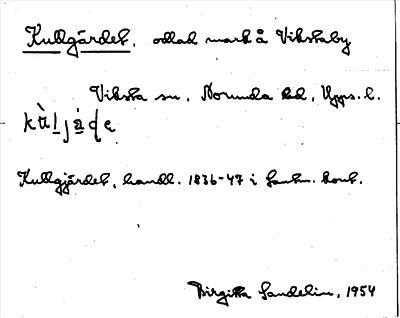 Kullgärdet, odlad mark å Vikstaby
Viksta sn, Norunda hd, Upps. l.
kùljàde
Kullgjärdet, handl. 1836-47 i Lantm. kont.
Birgitta Sandelin, 1954